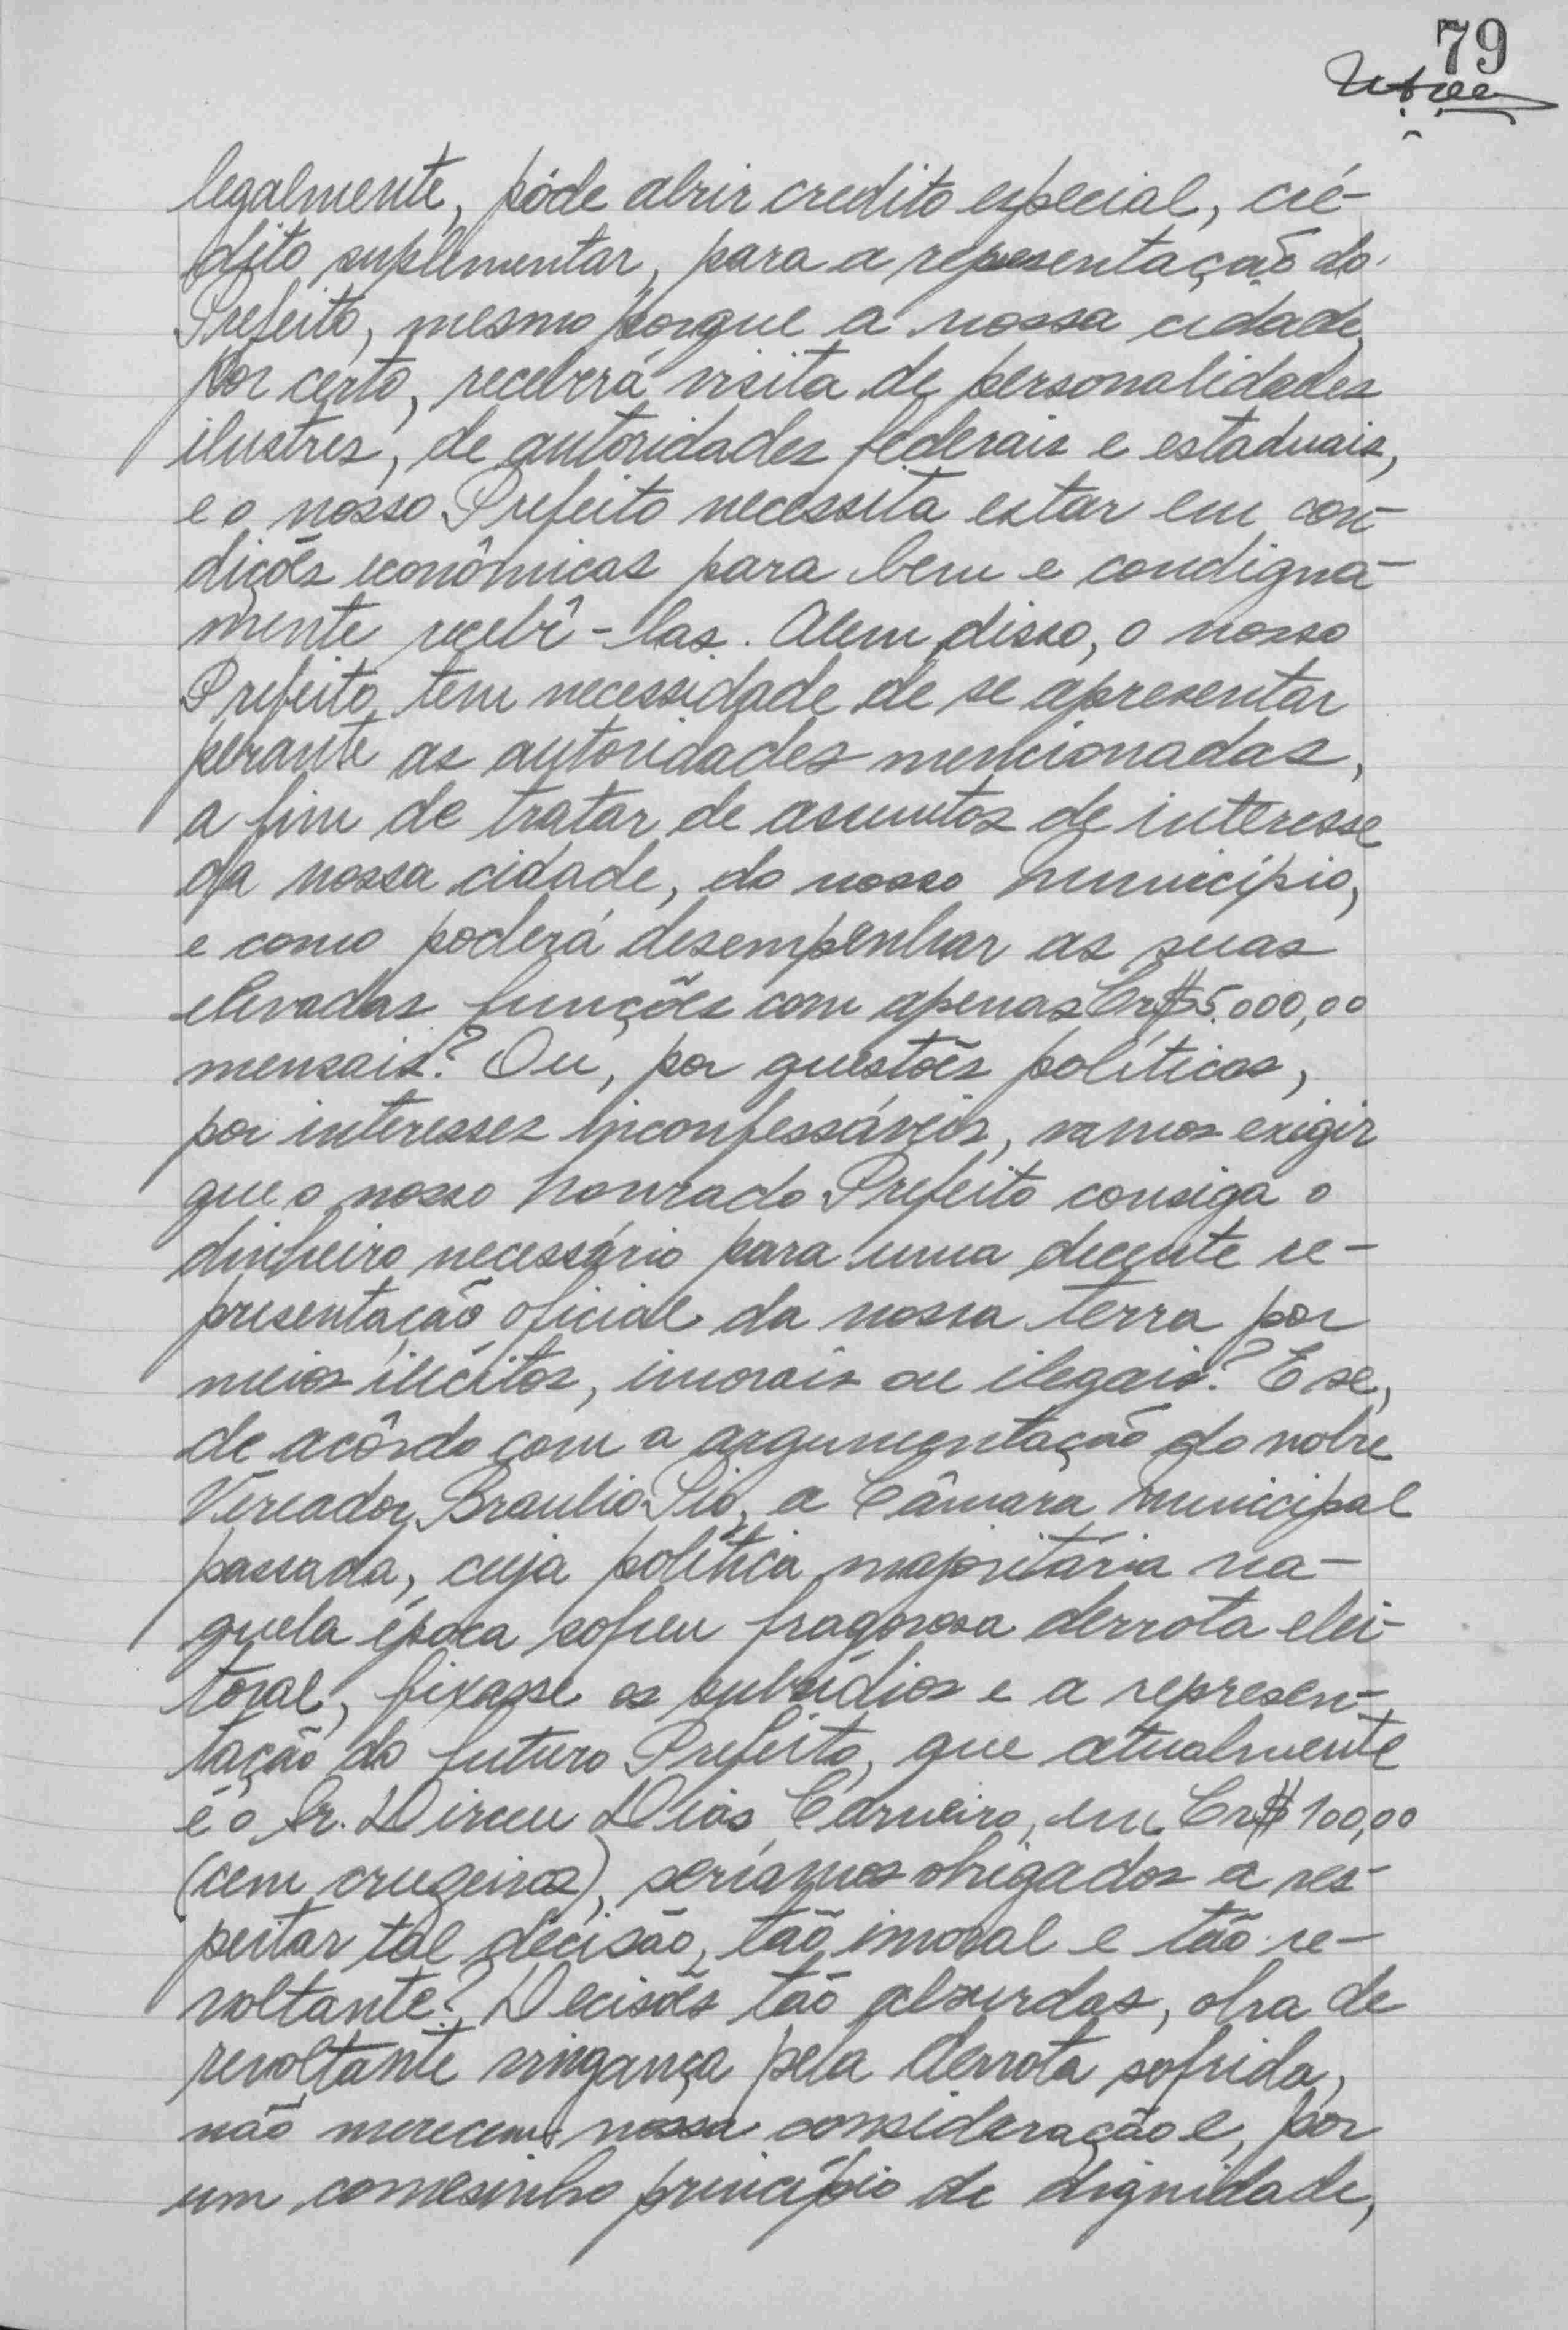 79
legalmente, póde abrir credito especial, cré-
dito suplementar, para a representação do
Prefeito, mesmo porque a nossa cidade,
por certo, receberá visita de personalidades
ilustres, de autoridades federais e estaduais,
e o nosso Prefeito necessita estar em con-
dições econômicas para bem e condigna-
mente recebê-las. Alem disso, o nosso
Prefeito tem necessidade de se apresentar
perante as autoridades mencionadas,
a fim de tratar de assuntos de interesse
da nossa cidade, do nosso município,
e como poderá desempenhar as suas
elevadas funções com apenas Cr$5.000,00
mensais? Ou, por questões políticas,
por interesses inconfessáveis, vamos exigir
que o nosso honrado Prefeito consiga o
dinheiro necessário para uma decente re-
presentação oficial da nossa terra por
meios ilícitos, imorais ou ilegais? E se,
de acôrdo com a argumentação do nobre
Vereador Braulio Pio, a Câmara municipal
passada, cuja política majoritária na-
quela época sofreu fragorosa derrota elei-
toral, fixasse os subsídios e a represen-
tação do futuro Prefeito, que atualmente
é o Sr. Dirceu Dias Carneiro, em Cr$ 100,00
(cem cruzeiros), seríamos obrigados a res-
peitar tal decisão, tão imoral e tão re-
voltante? Decisões tão absurdas, obra de
revoltante vingança pela derrota sofrida,
não merecem nossa consideração e, por
um comesinho princípio de dignidade,